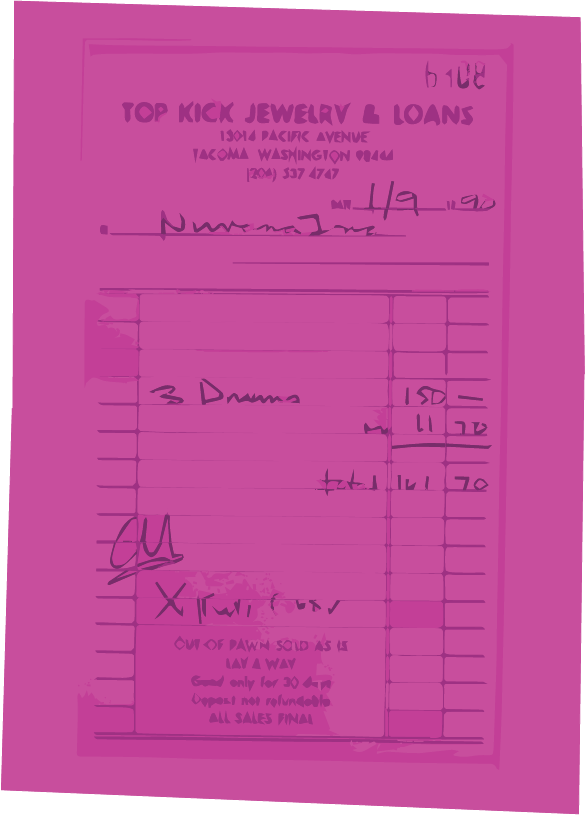 TOP KICK JEWELRY & LOANS
13014 PACIFIC AVENUE
TACOMA WASHINGTON 98444
(206) 537 4747
DATE 1/9 19 90
Nirvana Inc
3 Drums 150 —
11 70
total 161 70
X
OUT OF PAWN SOLD AS IS
LAY A WAY
Good only for 30 days
Deposit not refundable
ALL SALES FINAL